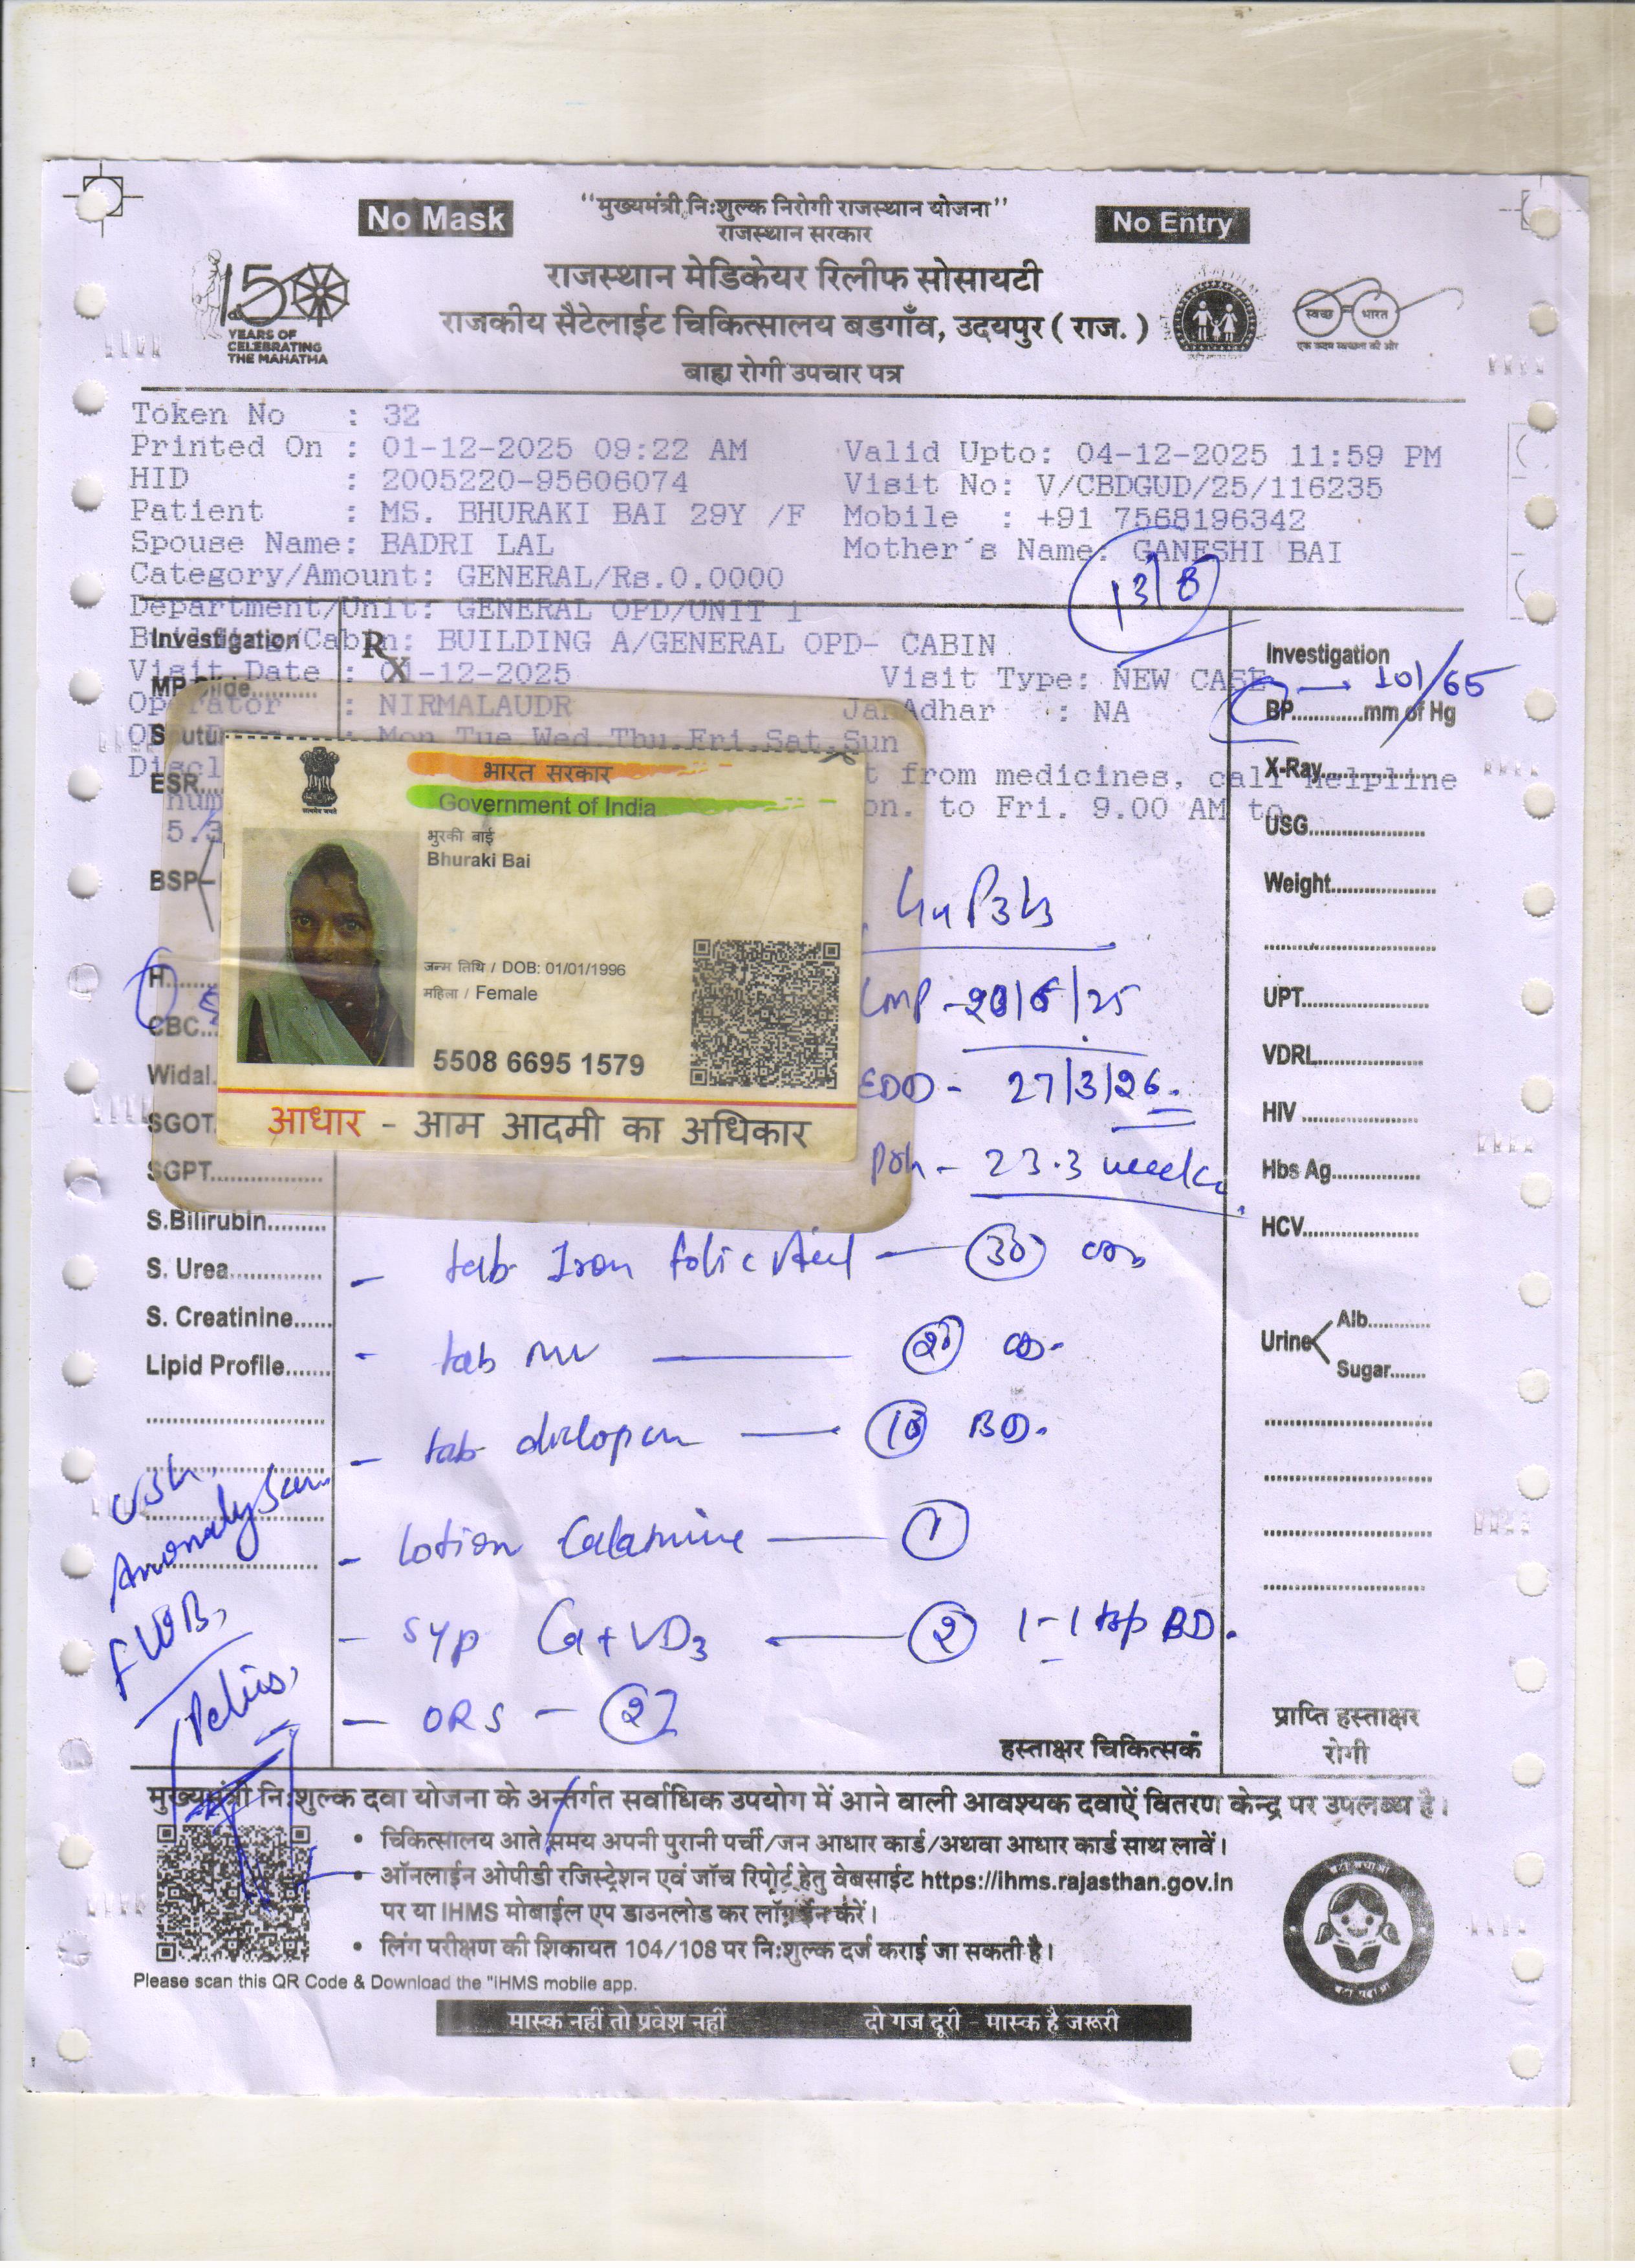 No Mask
"मुख्यमंत्री निःशुल्क निरोगी राजस्थान योजना"
No Entry
राजस्थान सरकार
राजस्थान मेडिकेयर रिलीफ सोसायटी
राजकीय सैटेलाईट चिकित्सालय बडगाँव, उदयपुर ( राज. )
150
YEARS OF
CELEBRATING
THE MAHATMA
स्वच्छ भारत
एक कदम स्वच्छता की ओर
बाह्य रोगी उपचार पत्र
Token No : 32
Printed On : 01-12-2025 09:22 AM Valid Upto: 04-12-2025 11:59 PM
HID : 2005220-95606074 Visit No: V/CBDGUD/25/116235
Patient : MS. BHURAKI BAI 29Y /F Mobile : +91 7568196342
Spouse Name: BADRI LAL Mother's Name: GANESHI BAI
Category/Amount: GENERAL/Rs.0.0000
13/8
Department/Unit: GENERAL OPD/UNIT 1
Building/Cabin: BUILDING A/GENERAL OPD- CABIN
Visit Date : 01-12-2025 Visit Type: NEW CASE
Operator : NIRMALAUDR JanAdhar : NA
Mon,Tue,Wed,Thu,Fri,Sat,Sun
from medicines, call Helpline
num on. to Fri. 9.00 AM to
5.3
Investigation
Rx
MP Slide
ESR
BSP
H
CBC
Widal
SGOT
SGPT
S.Bilirubin
S. Urea
S. Creatinine
Lipid Profile
भारत सरकार
Government of India
भुरकी बाई
Bhuraki Bai
जन्म तिथि / DOB: 01/01/1996
महिला / Female
5508 6695 1579
आधार - आम आदमी का अधिकार
G4 P3 L3
LMP - 20/6/25
EDD - 27/3/26.
POG - 23.3 weeks
- tab Iron folic Acid — 30 OD
- tab MV — 20 OD.
- tab — 10 BD.
- Lotion Calamine — 1
- Syp Ca + VD3 — 2 1-1 tsp BD.
- ORS - 2
USG
Anomaly Scan
FWB,
Pelvis,
Investigation
101/65
BP.............mm of Hg
X-Ray
USG
Weight
UPT
VDRL
HIV
Hbs Ag
HCV
Urine
Alb.
Sugar
हस्ताक्षर चिकित्सक
प्राप्ति हस्ताक्षर
रोगी
मुख्यमंत्री निःशुल्क दवा योजना के अन्तर्गत सर्वाधिक उपयोग में आने वाली आवश्यक दवाऐं वितरण केन्द्र पर उपलब्ध है।
• चिकित्सालय आते समय अपनी पुरानी पर्ची/जन आधार कार्ड/अथवा आधार कार्ड साथ लावें।
• ऑनलाईन ओपीडी रजिस्ट्रेशन एवं जाँच रिपोर्ट हेतु वेबसाईट https://ihms.rajasthan.gov.in
पर या IHMS मोबाईल एप डाउनलोड कर लॉग ईन करें।
• लिंग परीक्षण की शिकायत 104/108 पर निःशुल्क दर्ज कराई जा सकती है।
Please scan this QR Code & Download the "IHMS mobile app.
मास्क नहीं तो प्रवेश नहीं दो गज दूरी - मास्क है जरूरी